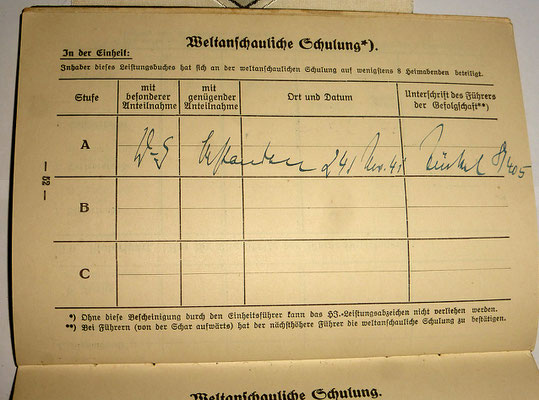 Weltanschauliche Schulung*).
In der Einheit:
Inhaber dieses Leistungsbuches hat sich an der weltanschaulichen Schulung auf wenigstens 8 Heimabenden beteiligt.
Stufe
mit besonderer Anteilnahme
mit genügender Anteilnahme
Ort und Datum
Unterschrift des Führers der Gefolgschaft**)
A
B
C
— 52 —
*) Ohne diese Bescheinigung durch den Einheitsführer kann das HJ.-Leistungsabzeichen nicht verliehen werden.
**) Bei Führern (von der Schar aufwärts) hat der nächsthöhere Führer die weltanschauliche Schulung zu bestätigen.
Weltanschauliche Schulung.